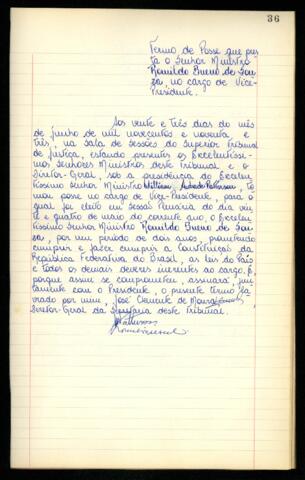 36
Termo de Posse que pres
ta o Senhor Ministro
Romildo Bueno de Sou
za, no cargo de Vice-
Presidente.
Aos vinte e três dias do mês
de junho de mil novecentos e noventa e
três, na sala de sessões do Superior Tribunal
de Justiça, estando presentes os Excelentíssi-
mos Senhores Ministros deste Tribunal e o
Diretor-Geral, sob a presidência do Excelen
tíssimo Senhor Ministro William Andrade Patterson, to
mou posse no cargo de Vice-Presidente, para o
qual foi eleito em sessão Plenária do dia vin
te e quatro de maio do corrente ano, o Excelen
tíssimo Senhor Ministro Romildo Bueno de Sou
za, por um período de dois anos, prometendo
cumprir e fazer cumprir a Constituição da
República Federativa do Brasil, as leis do País
e todos os demais deveres inerentes ao cargo. E,
porque assim se comprometeu, assinará, jun
tamente com o Presidente, o presente termo la
vrado por mim, José Clemente de Moura,
Diretor-Geral da Secretaria deste Tribunal.